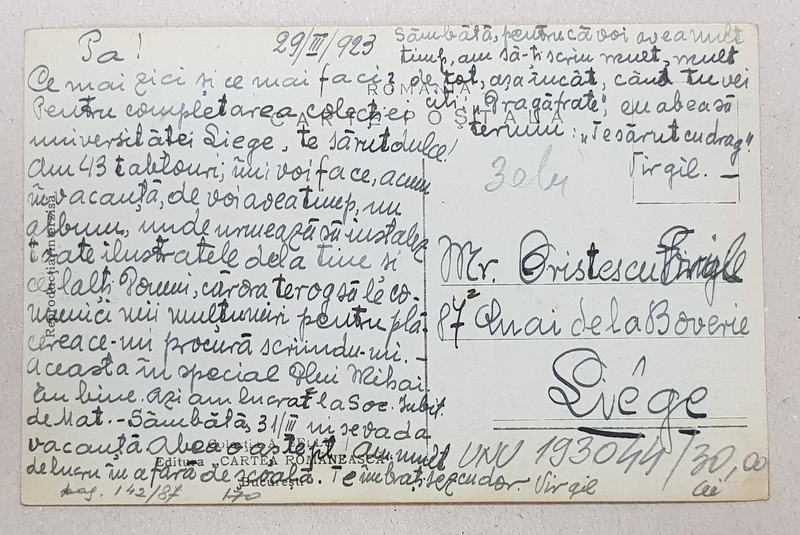 Pa! 29/III/923
Ce mai zici și ce mai faci?
Pentru completarea colecției
universităței Liege, te sărut dulce!
Am 43 tablouri; îmi voi face, acum
în vacanță, de voi avea timp, un
album, unde urmează să instalez
toate ilustratele dela tine si
ceilalti Domni, cărora te rog să le co-
munici mii mulțumiri pentru plă-
cerea ce-mi procură scriindu-mi. -
Aceasta în special Dlui Mihai
Eu bine. Azi am lucrat la Soc.
de Mat. - Sâmbătă, 31/III ni se va da
vacanță. Abea o aștept. Am mult
de lucru în afară de școală. Te îmbrățișez cu dor. Virgil
Sâmbătă, pentrucă voi avea mult
timp, am să-ți scriu mult, mult
de tot, așa încât, când tu vei
citi: "Dragă frate", eu abea să
termin: "Te sărut cu drag".
Virgil. -
ROMÂNIA
CARTE POȘTALĂ
3 lei
Mr. Cristescu
87² Quai de la Boverie
Liége
UNU 193044/30,00
lei
Reproducția interzisă
Editura „CARTEA ROMÂNEASCĂ"
București
pag. 142/87 170